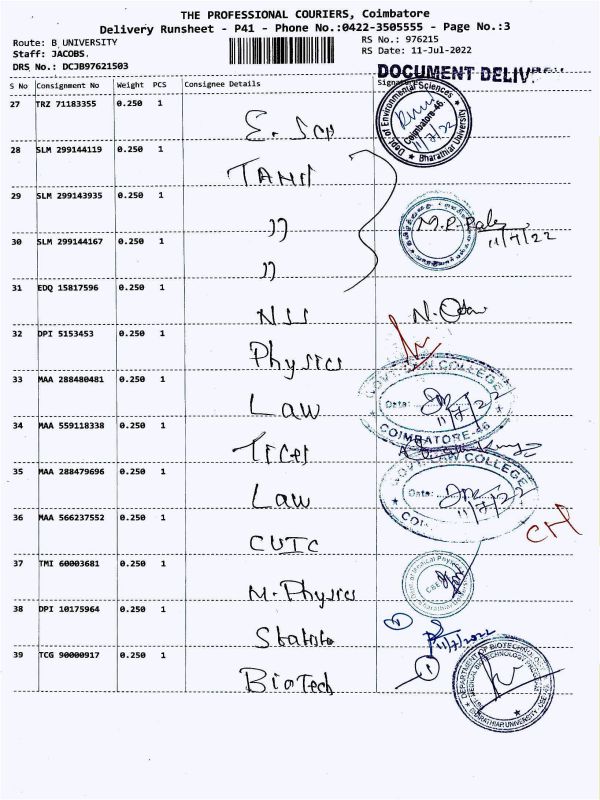 THE PROFESSIONAL COURIERS, Coimbatore
Delivery Runsheet - P41 - Phone No.:0422-3505555 - Page No.:3
Route: B_UNIVERSITY
RS No.: 976215
Staff: JACOBS.
RS Date: 11-Jul-2022
DRS No.: DCJB97621503
DOCUMENT
S No Consignment No Weight PCS Consignee Details
27 TRZ 71183355 0.250 1
Dept of Environmental Sciences Coimbatore-46. Bharathiar University
11/7/22
28 SLM 299144119 0.250 1
29 SLM 299143935 0.250 1 "
11/7/22
30 SLM 299144167 0.250 1 "
31 EDQ 15817596 0.250 1 NSS
32 DPI 5153453 0.250 1 Physics
33 MAA 288480481 0.250 1 Law
GOVT LAW COLLEGE
Date: 11/7/22
COIMBATORE-46
34 MAA 559118338 0.250 1
35 MAA 288479696 0.250 1 Law
GOVT LAW COLLEGE
Date: 11/7/22
36 MAA 566237552 0.250 1 CUIC
37 TMI 60003681 0.250 1 M. Physics
Dept. of Medical Physics
38 DPI 10175964 0.250 1
11/7/2022
39 TCG 90000917 0.250 1 BioTech
1
DEPARTMENT OF BIOTECHNOLOGY
BHARATHIAR UNIVERSITY